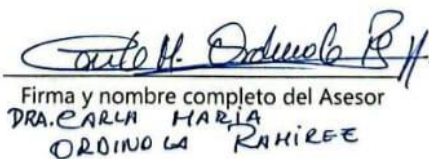 Carla M. Ordinola R
Firma y nombre completo del Asesor
DRA. CARLA MARÍA
ORDINOLA RAMIREZ